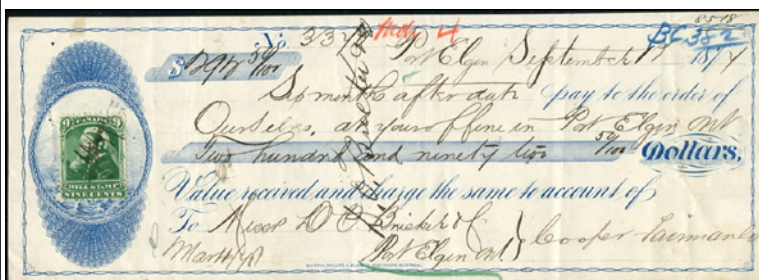 8518
No. 332 4 BC 382
$292 50/100 Port Elgin September 17 1874
Six months after date pay to the order of
Ourselves, at your office in Port Elgin Ont
Two hundred and ninety two 50/100 Dollars,
Value received and charge the same to account of
To Messr D. E. Bricker &
Port Elgin Ont Cooper Fairman & Co
9 CANADA 9
BILL STAMP
NINE CENTS